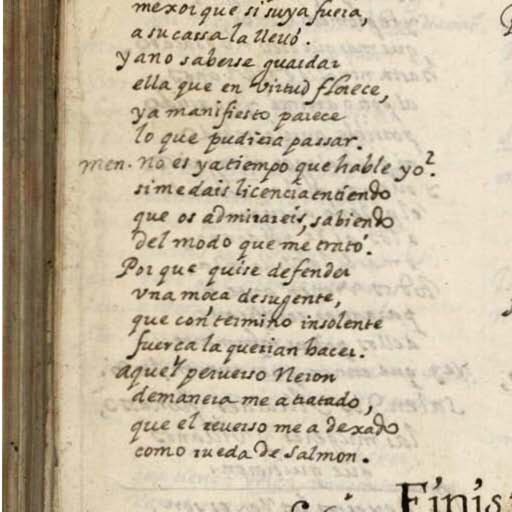 mexor que si suya fuera,
a su cassa la lleuó.
Y a no saberse guardar
ella que en virtud florece,
ya manifiesto parece
lo que pudiera passar.
Men. No es ya tiempo que hable yo?
si me dais licencia entiendo
que os admirareis, sabiendo
del modo que me trató.
Por que quise defender
vna moca de su gente,
que con termino insolente
fuerca la querian hacer.
aquel peruerso Neron
de manera me a tratado,
que el reuerso me a dexado
como rueda de salmon.
Finis